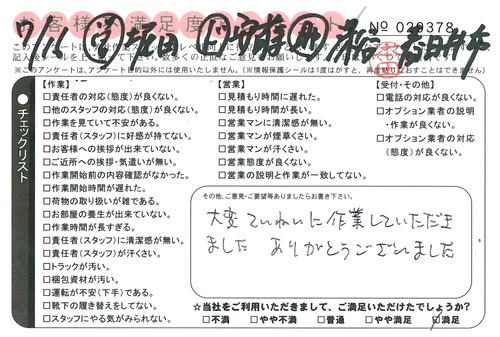 お客様満足度アンケート
7/1
No 020378
記入後シールを
(※このアンケートは、アンケート目的以外には使用いたしません。)(※情報保護シールは1度はがすと、再度貼りなおすことはできません)
チェックリスト
【作業】
□責任者の対応(態度)が良くない。
□他のスタッフの対応(態度)が良くない。
□作業を見ていて不安がある。
□責任者(スタッフ)に好感が持てない。
□お客様への挨拶が出来ていない。
□ご近所への挨拶・気遣いが無い。
□作業開始前の内容確認がなかった。
□作業開始時間が遅れた。
□荷物の取り扱いが雑である。
□お部屋の養生が出来ていない。
□作業時間が長すぎる。
□責任者(スタッフ)に清潔感が無い。
□責任者(スタッフ)が汗くさい。
□トラックが汚い。
□梱包資材が汚い。
□運転が不安(下手)である。
□靴下の履き替えをしてない。
□スタッフにやる気がみられない。
【営業】
□見積もり時間に遅れた。
□見積もり時間が長い。
□営業マンに清潔感が無い。
□営業マンが煙草くさい。
□営業マンが汗くさい。
□営業態度が良くない。
□営業の説明と作業が一致してない。
【受付・その他】
□電話の対応が良くない。
□オプション業者の説明
・作業が良くない。
□オプション業者の対応
(態度)が良くない。
その他、ご意見・ご要望等ありましたらお書き下さい。
大変ていねいに作業していただき
ました ありがとうございました
☆当社をご利用いただきまして、ご満足いただけたでしょうか?
□不満 □やや不満 □普通 □やや満足 □満足